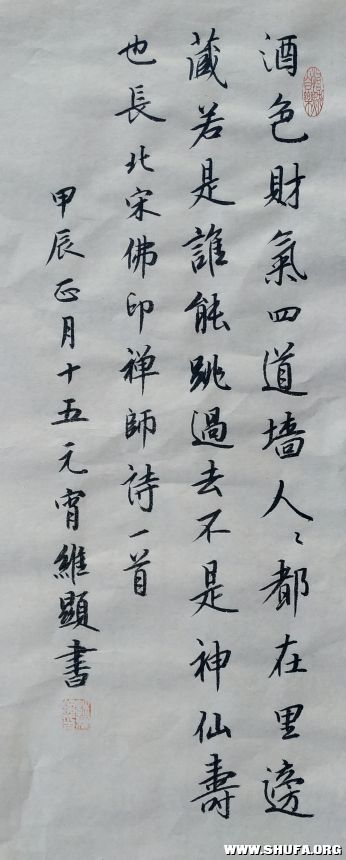 酒色財氣四道墻人々都在里邊
藏若是誰能跳過去不是神仙壽
也長北宋佛印禅師詩一首
甲辰正月十五元宵維顯書
WWW.SHUFA.ORG